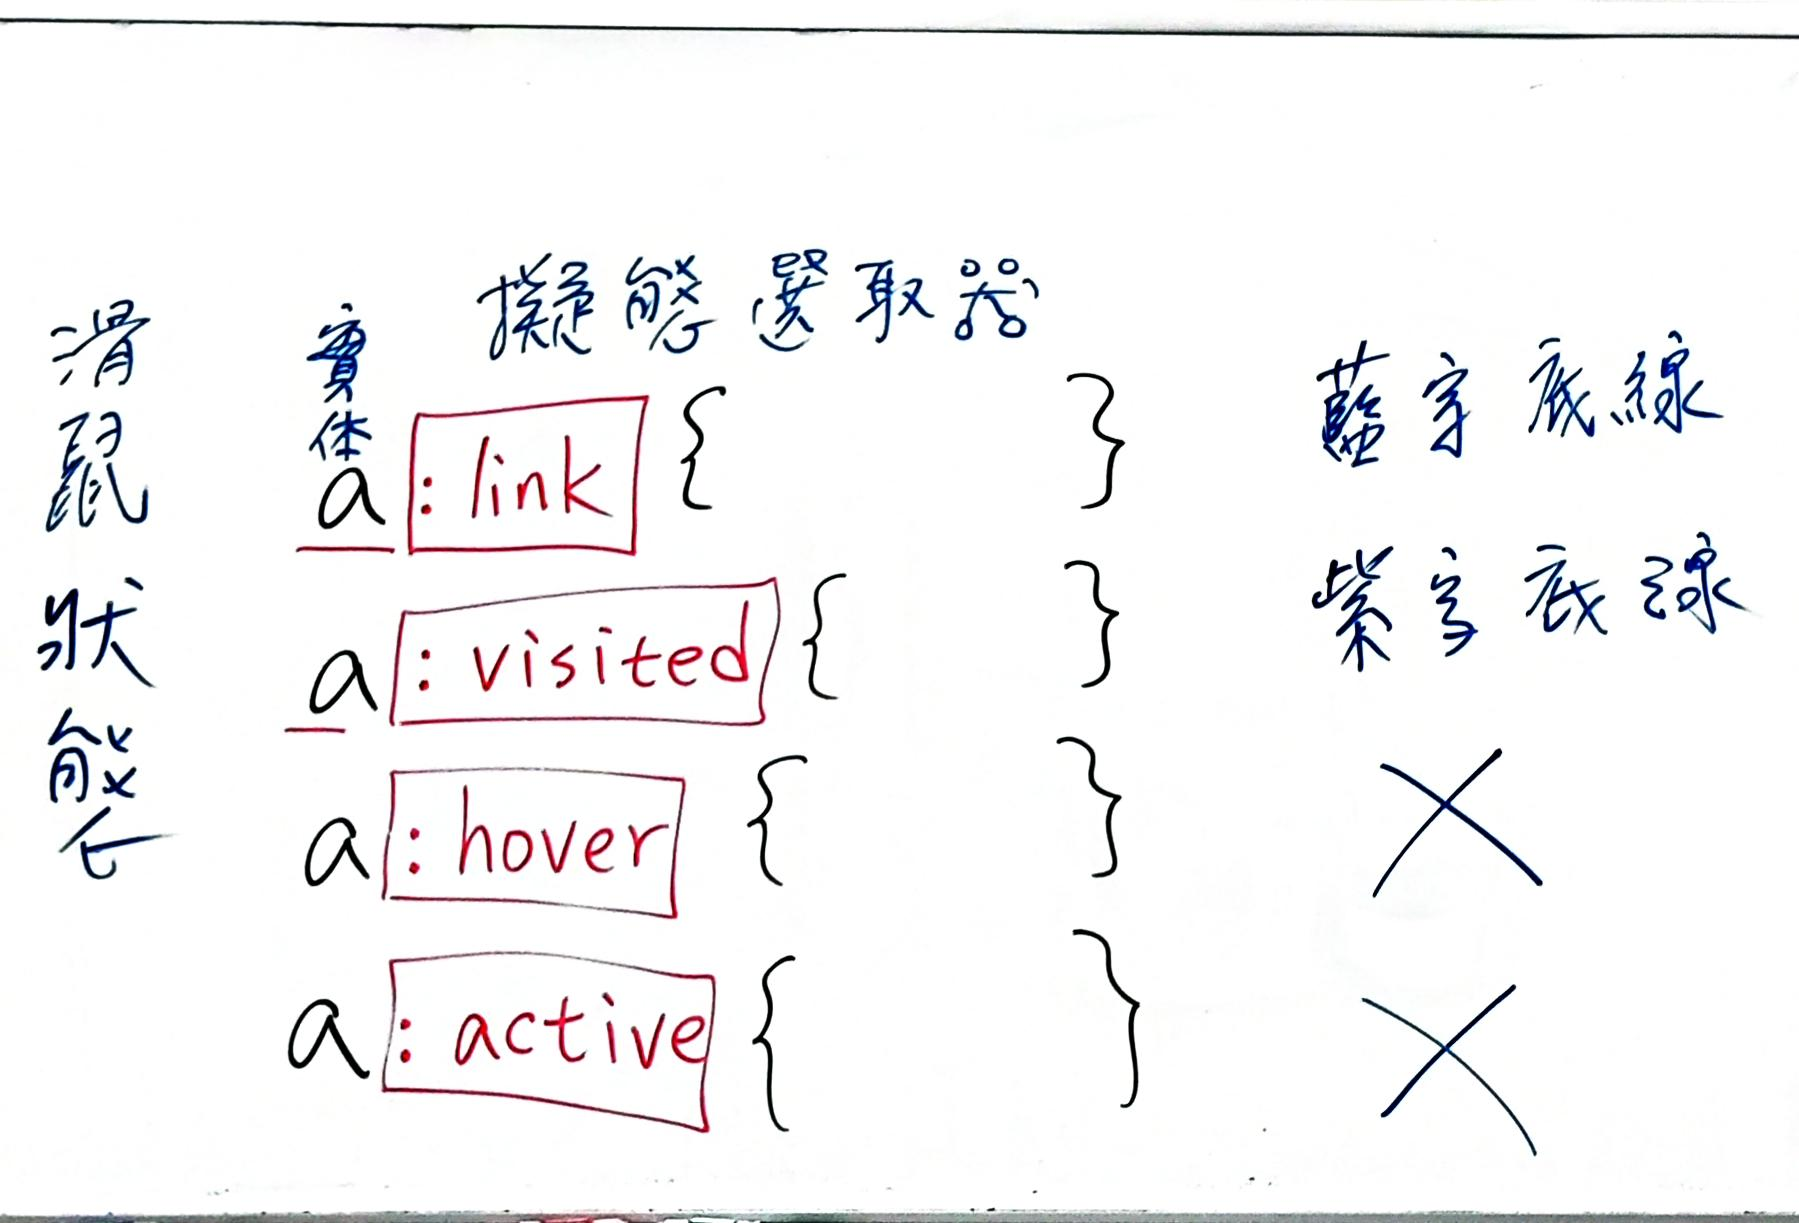 滑鼠狀態
擬態選取器
實体
a:link{ } 藍字底線
a:visited{ } 紫字底線
a:hover{ }
a:active{ }